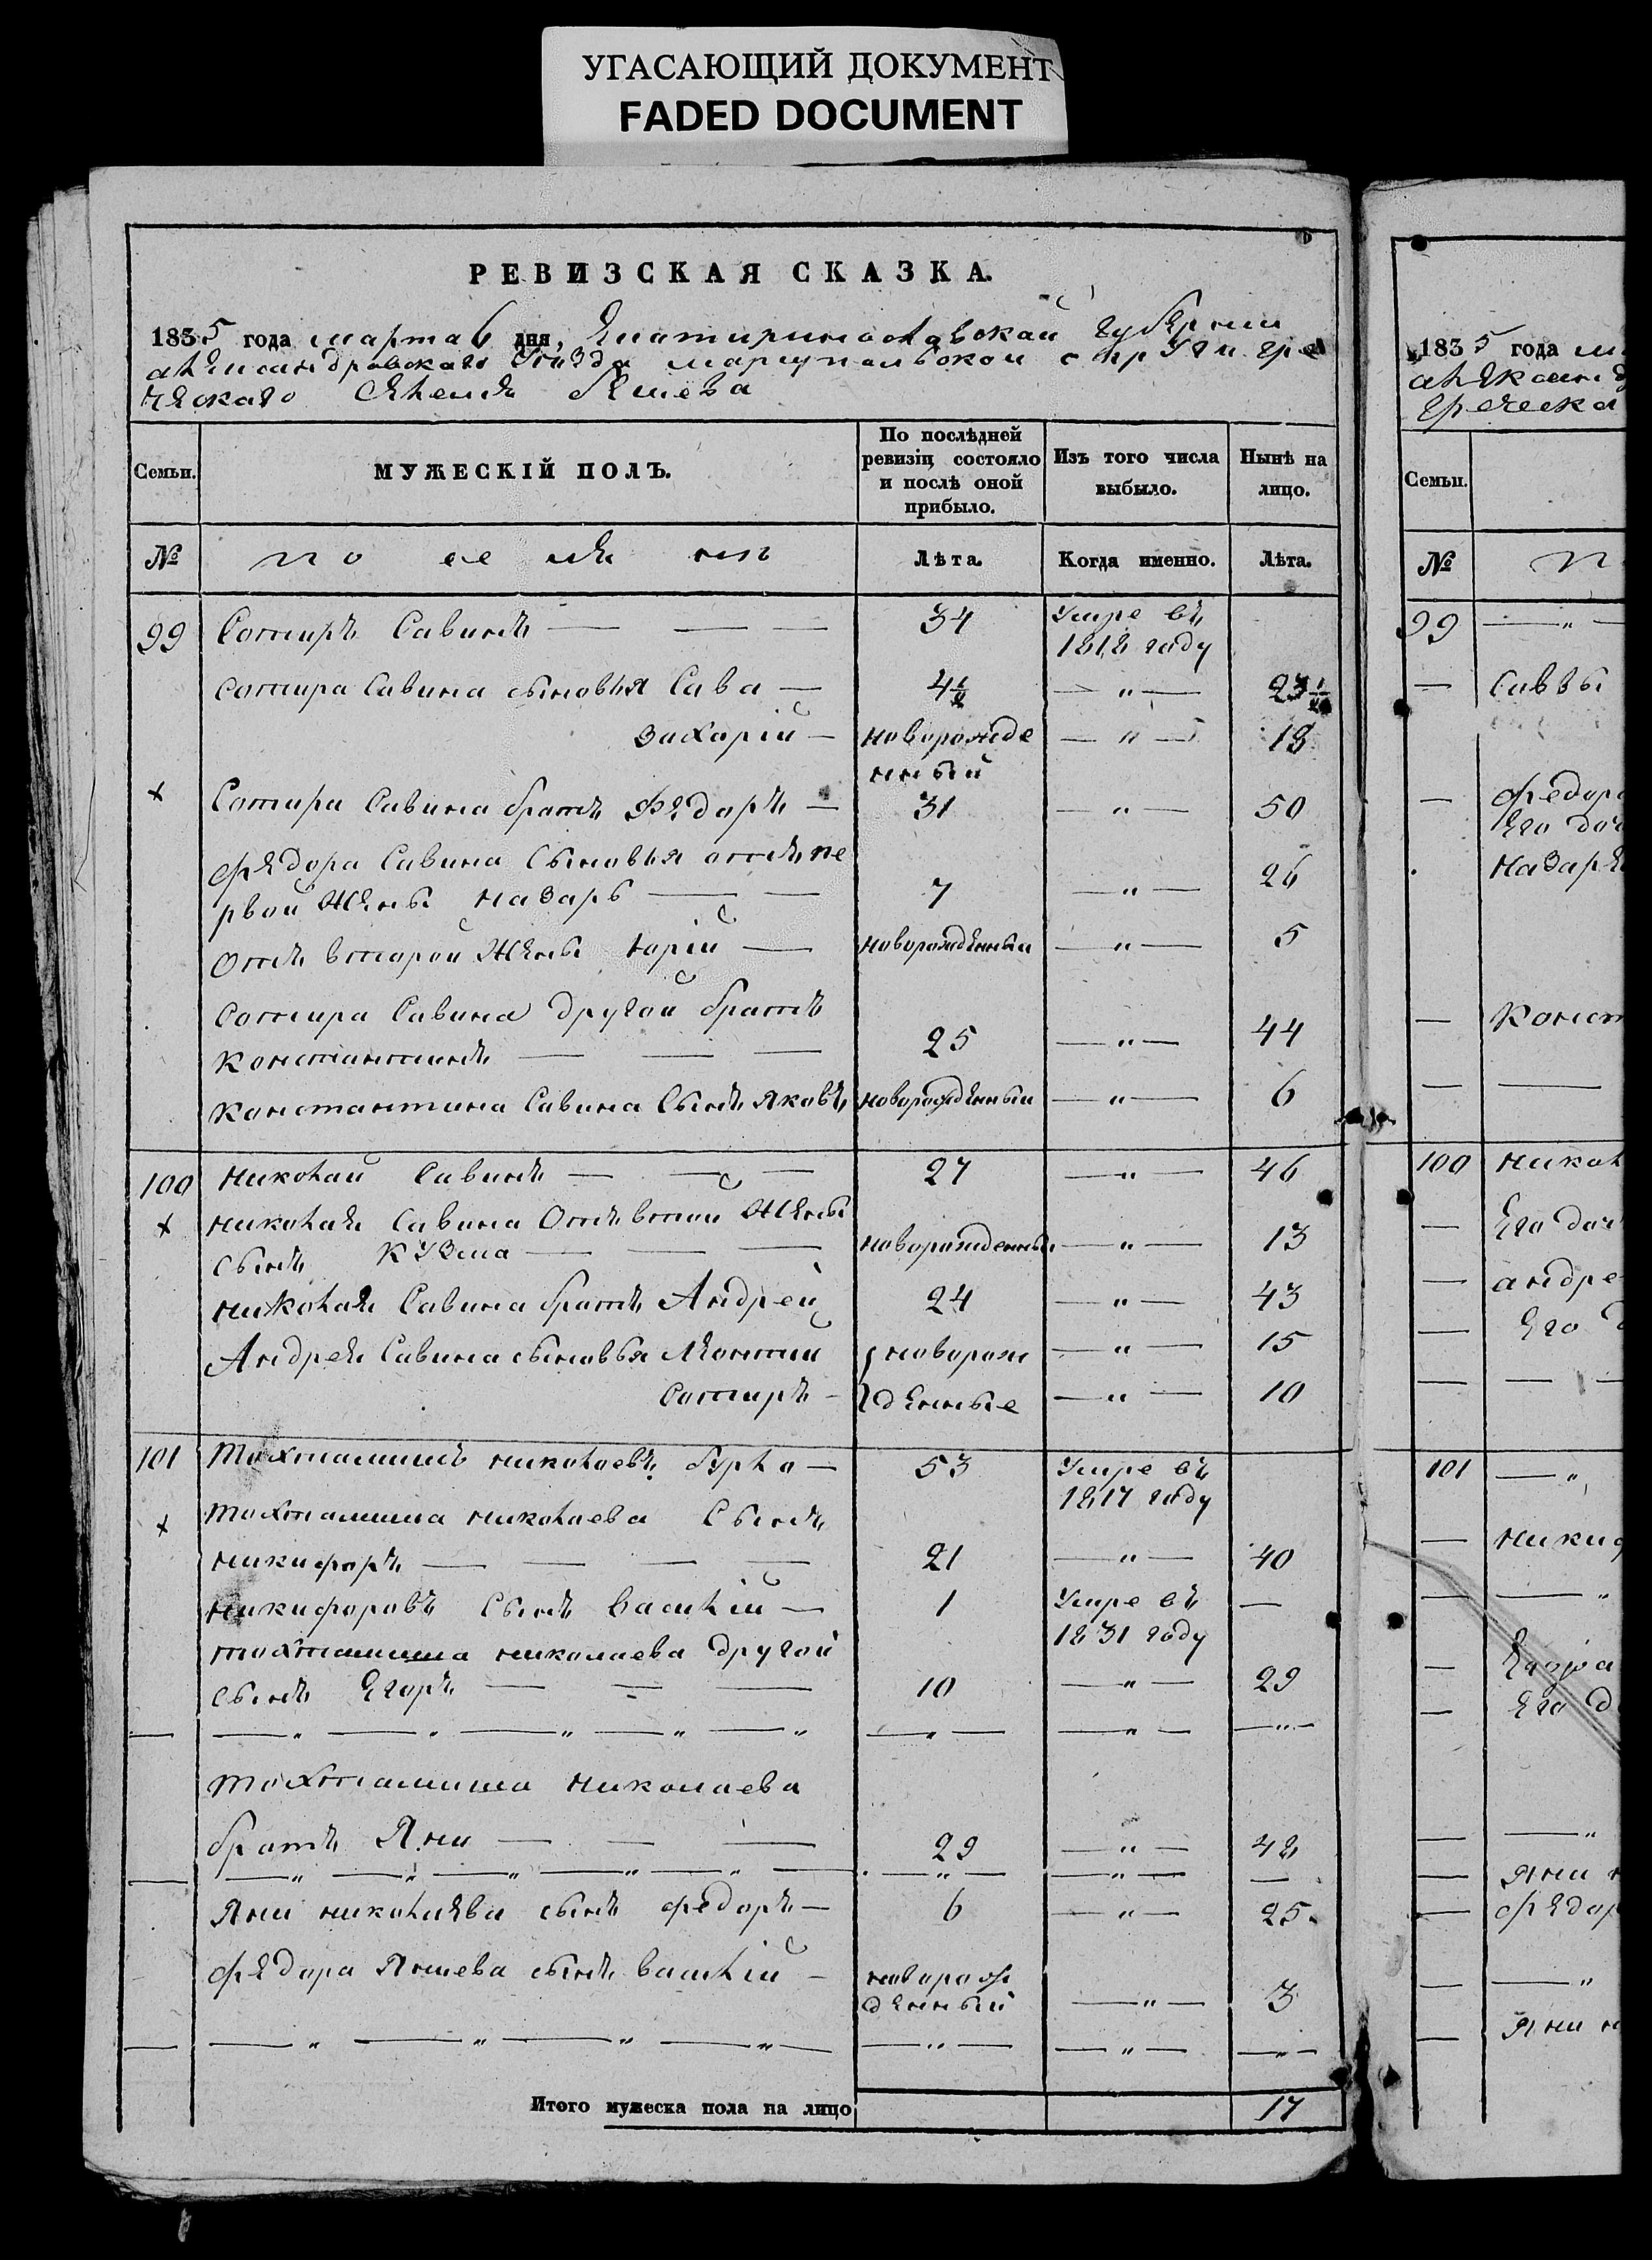 УГАСАЮЩИЙ ДОКУМЕНТ
FADED DOCUMENT
РЕВИЗСКАЯ СКАЗКА.
1835 года марта 6 дня, Екатиринославской губернии
александровскаго уѣзда мариупольской округи гре
ческаго селения
Семьи.
МУЖЕСКІЙ ПОЛЪ.
По послѣдней ревизіи состояло и послѣ оной прибыло.
Изъ того числа выбыло.
Нынѣ на лицо.
№
поселянъ
Лѣта.
Когда именно.
Лѣта.
99 Сотиръ Савинъ — — — 34 Умре въ
1818 году
Сотира Савина сыновья Сава — 4½ — „ — 23½
Захарій — новорожде — „ — 18
нный
Сотира Савина братъ Федоръ — 31 — „ — 50
Федора Савина сыновья отъ пе
рвой жены Назарь — — 7 — „ — 26
Отъ второй жены Юрій — новорожденный — „ — 5
Сотира Савина другой братъ
Константинъ — — — 25 — „ — 44
Константина Савина сынъ Яковъ новорожденный — „ — 6
100 Николай Савинъ — — — 27 — „ — 46
Николая Савина Отъ второй жены
сынъ Кузма — — — новорожденный — „ — 13
Николая Савина братъ Андрей 24 — „ — 43
Андрея Савина сыновья Леонтий новорож — „ — 15
Сотиръ — денные — „ — 10
101 Тохтамишъ николаевъ — 53 Умре въ
1817 году
Тохтамиша николаева Сынъ
никифоръ — — — — 21 — „ — 40
никифоровъ Сынъ василій — 1 Умре въ —
1831 году
тохтамиша николаева другой
сынъ Егоръ — — — 10 — „ — 29
тохтамиша николаева
братъ Яни — — — 29 — „ — 48
Яни николаева сынъ федоръ — 6 — „ — 25
федора Яниева сынъ василій — новорож
денный — „ — 3
Итого мужеска пола на лицо 17
1835 года
греческа
Семьи.
№
99
— Саввы
— федора
Его доч
назаря
— Конст
100 никол
— Его доч
— андре
— Его
101 — „
— никиф
— Егора
— Его д
— Яни н
— федор
— Яни н